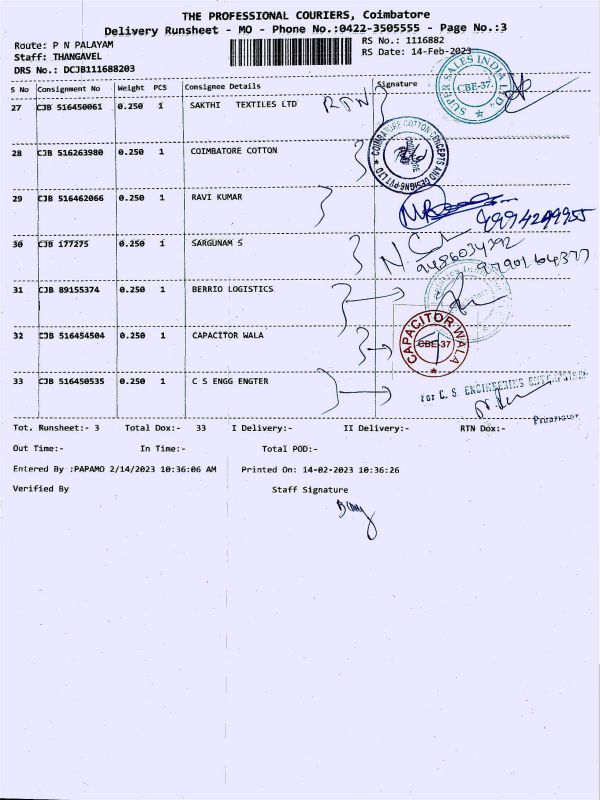 THE PROFESSIONAL COURIERS, Coimbatore
Delivery Runsheet - MO - Phone No.:0422-3505555 - Page No.:3
Route: P N PALAYAM
RS No.: 1116882
Staff: THANGAVEL
RS Date: 14-Feb-2023
DRS No.: DCJB111688203
S No Consignment No Weight PCS Consignee Details Signature
27 CJB 516450061 0.250 1 SAKTHI TEXTILES LTD RTN
SUPER SALES INDIA LTD. CBE-37
28 CJB 516263980 0.250 1 COIMBATORE COTTON
COIMBATORE COTTON CONCEPTS AND DESIGNS PVT LTD
29 CJB 516462066 0.250 1 RAVI KUMAR
30 CJB 177275 0.250 1 SARGUNAM S
31 CJB 89155374 0.250 1 BERRIO LOGISTICS
32 CJB 516454504 0.250 1 CAPACITOR WALA
CAPACITOR WALA CBE-37
33 CJB 516450535 0.250 1 C S ENGG ENGTER
For C. S. ENGINEERING
Proprietor
Tot. Runsheet:- 3 Total Dox:- 33 I Delivery:- II Delivery:- RTN Dox:-
Out Time:- In Time:- Total POD:-
Entered By :PAPAMO 2/14/2023 10:36:06 AM Printed On: 14-02-2023 10:36:26
Verified By Staff Signature